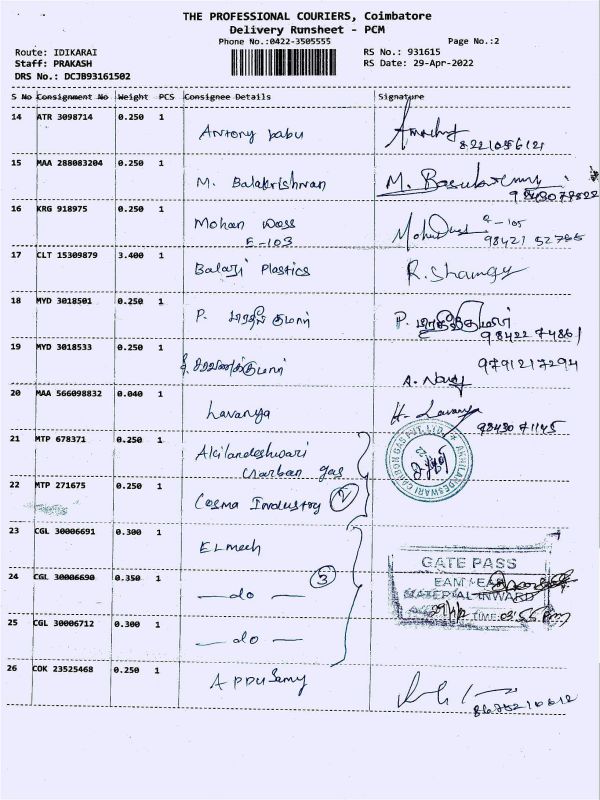 THE PROFESSIONAL COURIERS, Coimbatore
Delivery Runsheet - PCM
Phone No.:0422-3505555 Page No.:2
Route: IDIKARAI RS No.: 931615
Staff: PRAKASH RS Date: 29-Apr-2022
DRS No.: DCJB93161502
S No Consignment No Weight PCS Consignee Details Signature
14 ATR 3098714 0.250 1 Antony babu
15 MAA 288083204 0.250 1 M. Balakrishnan
16 KRG 918975 0.250 1 Mohan Dass
E-103
17 CLT 15309879 3.400 1 Balaji Plastics
18 MYD 3018501 0.250 1 P.
19 MYD 3018533 0.250 1
9791217294
20 MAA 566098832 0.040 1 Lavanya H. Lavanya
9843071145
21 MTP 678371 0.250 1 Akilandeshwari
Carbon gas
AKHILANDESWARI CARBON GAS PVT. LTD.
22 MTP 271675 0.250 1 Cosma Industry 2
23 CGL 30006691 0.300 1 Elmech
GATE PASS
24 CGL 30006690 0.350 1 — do — 3
MATERIAL INWARD
TIME
25 CGL 30006712 0.300 1 — do —
26 COK 23525468 0.250 1 Appusamy